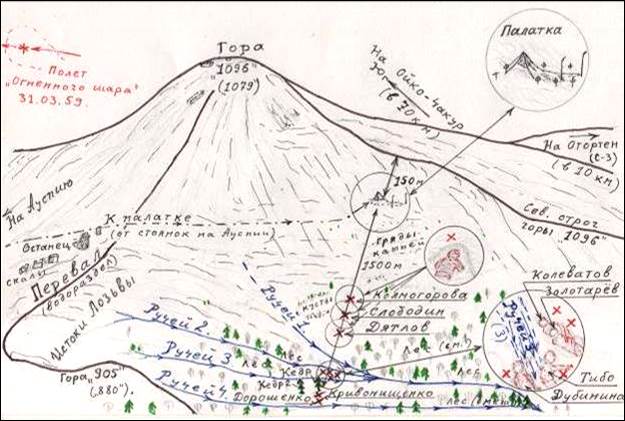 Гора
"1096"
(1079)
Полет
"Огненного шара"
31.03.59.
Палатка
На Ойко-Чакур
Ю
(в 20 км)
На Отортен
(С-З)
(в 10 км)
150м
На Ауспию
К палатке
(от стоянок на Ауспии)
Останец
скалы
Перевал
(водораздел)
Истоки Лозьвы
Сев. отрог
горы "1096"
гряды
камней
1500м
Колмогорова
Слободин
Дятлов
Колеватов
Золотарёв
кусты
Ручей 1.
Ручей 2.
лес
Ручей 3
лес
Ручей 4.
Кедр
Кедр 2
Дорошенко
Кривонищенко
Лес (см.)
лес
лес (смеш.)
Ручей 3
(3)
Тибо
Дубинина
Гора "905"
("880").